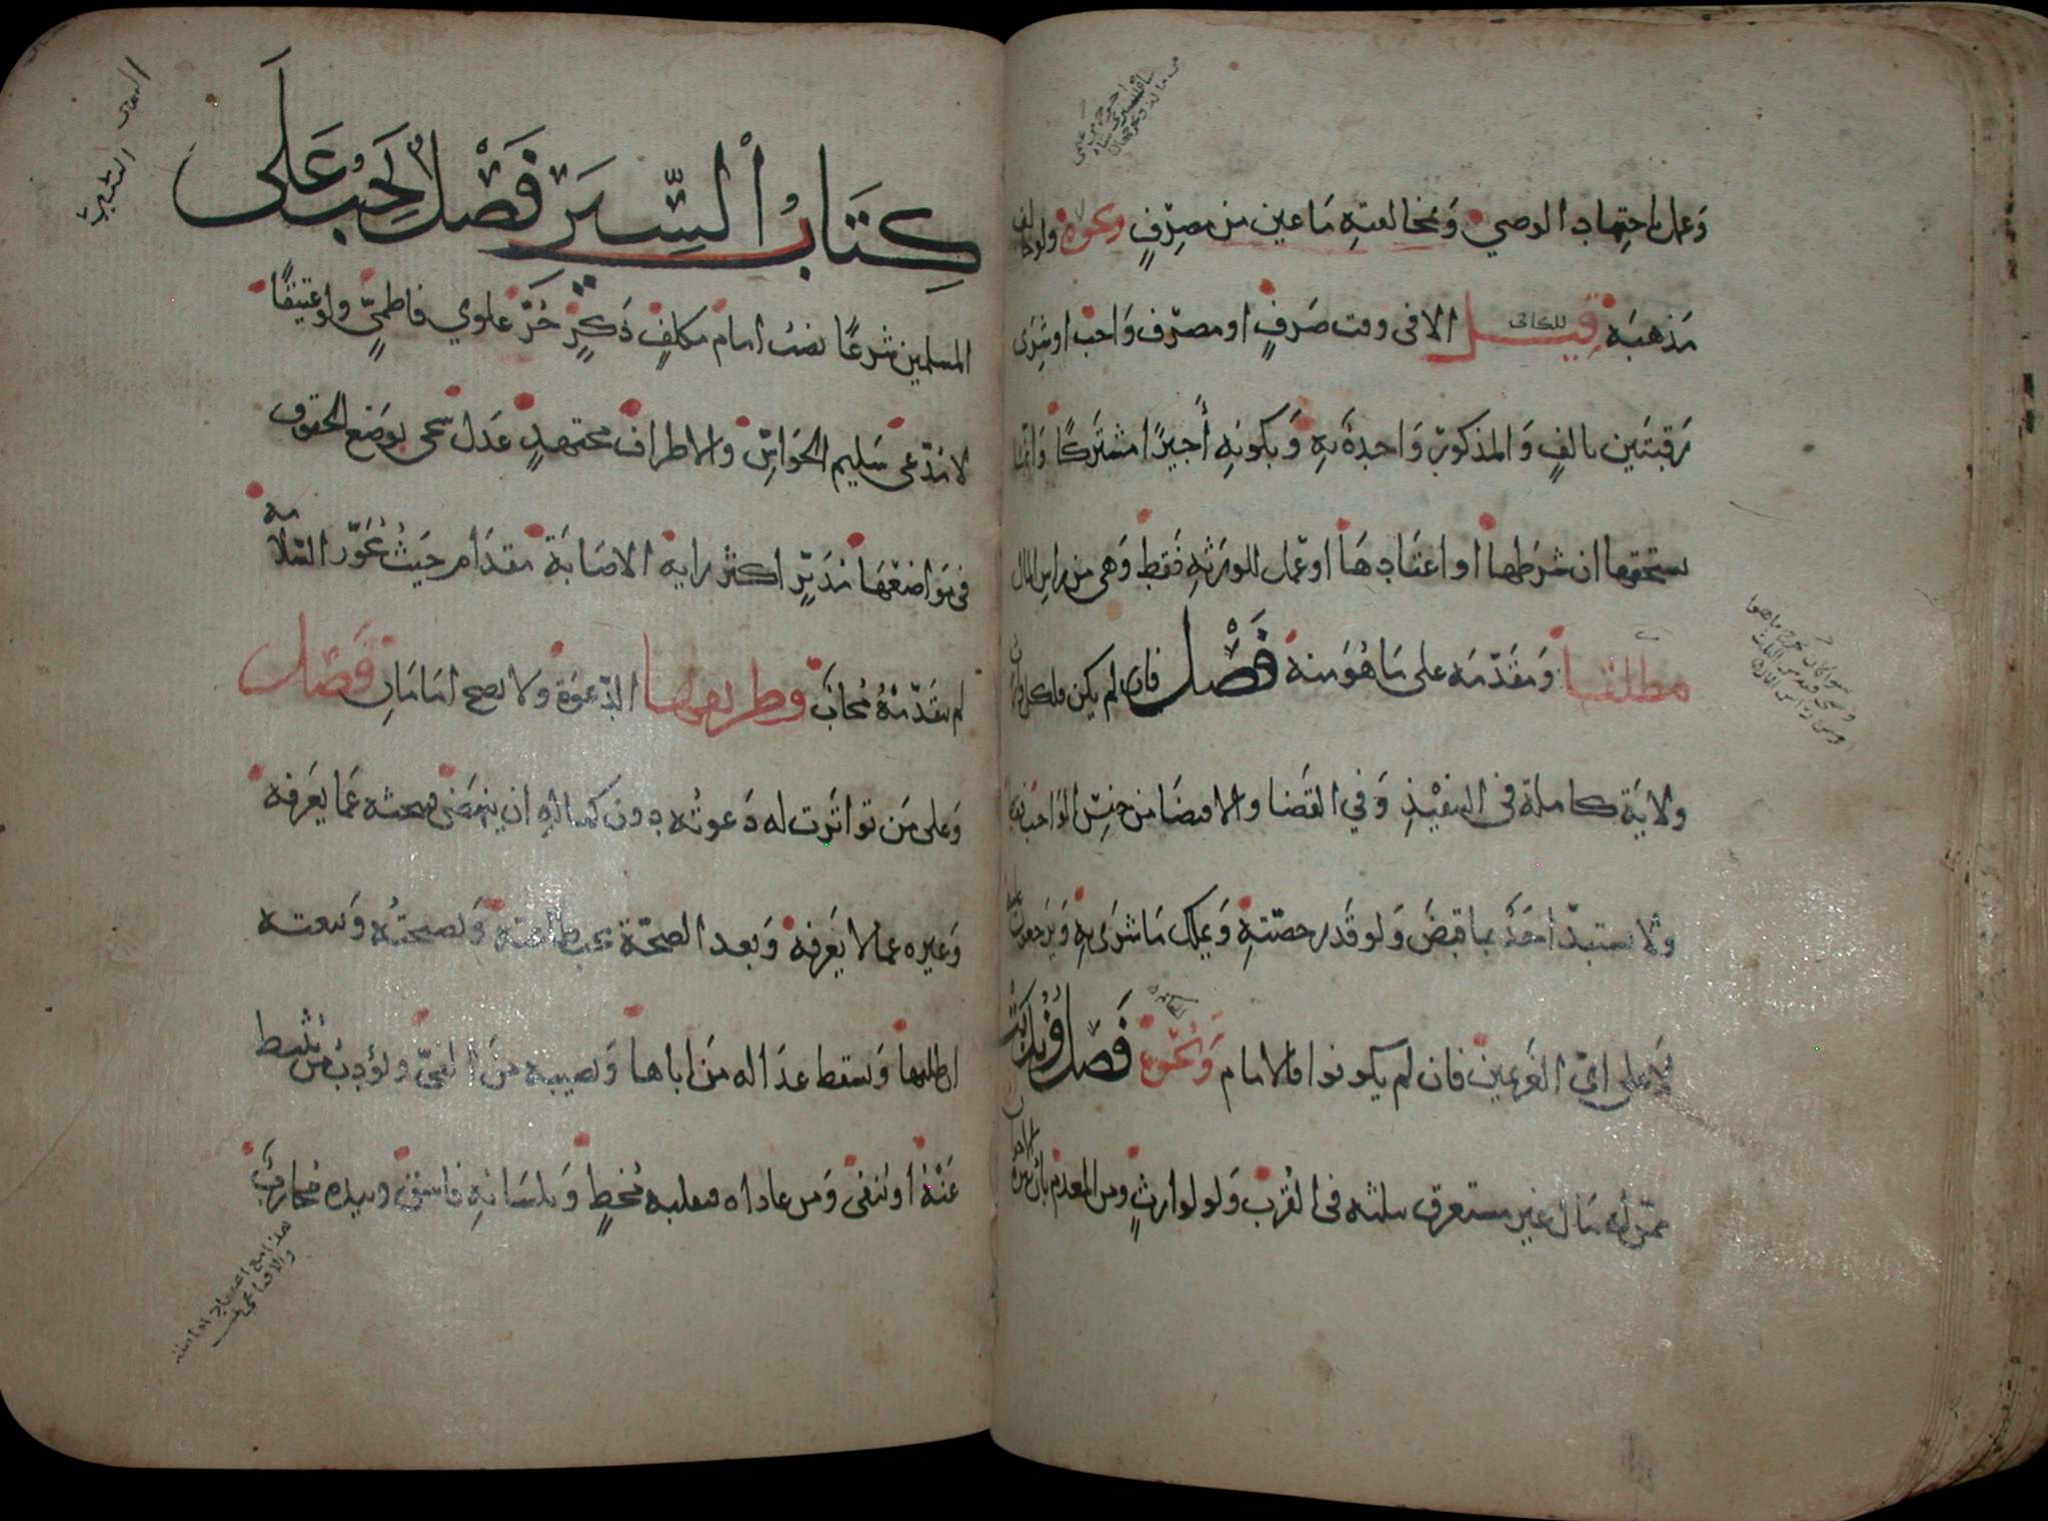 وَعمله باجتهاد الوصي وَمخالفته مَا عين من مصرِفٍ ونحوه ولو خالف
مَذهبَه قيل الا في وقت صَرفٍ او مصرف وَاجب او شِرَى
رَقبَتَين بالفٍ وَالمذكور وَاحدة بِه وَبكونه أجيرًا مشتركًا وَانما
يستحقها ان شرَطها او اعتَادهَا او عمل للورَثَه فَقط وَهي من راس المال
مطلقا وَمقدّمه على مَا هُوَ منه فَصْل فان لم يكن فلكل وارث
ولايَة كاملة في التنفيذِ وَفي القَضا والاقتضَا من جنس الوَاجب
وَلا يستبدّ احَدٌ بما قبضَ وَلو قَدر حصّتهِ وَيملك مَا شرَى بِه وَيَرجعون
لا على ايّ الغَريمين فان لم يكونوا فالامام وَنحوه فَصْل وَنُدِبَتْ
ممن له مَال غير مستغرق بثلثه في القُرَب وَلو لوارثٍ ومن المعدم بان يبره
الاخوان
كِتَابُ السِّيَر فَصْل يَجِبُ عَلَى
المسلمين شرعًا نصبُ امام مكلفٍ ذَكرٍ حُرٍّ علوي فاطميٍّ ولو عتيقًا
لا مدّعى سَليم الحَوَاسِّ والاطراف مجتهدٍ عَدل سخي بوَضع الحقوق
في مَوَاضعهَا مُدَبِّرٍ اكثر رايه الاصَابَة مقدَام حَيثُ يُجَوِّز السَّلامه
لم يتقَدّمْهُ مُجاب وطريقها الدّعوَة وَلا يصح امَامَانِ فَصْل
وَعلى مَن تواترَت له دَعوتُه دون كماله ان ينهَض فيبحثه عَما يَعرفه
وَغيره عما لا يَعرفه وَبعد الصحّة يجب طاعته وَنصيحتُه وَبيعته
ان طلبها وَتسقط عدَاله مَن اباها وَنصيبه منَ الفيّ وَيؤدب من يثبط
عَنْهُ او يُنفى وَمن عاداه فبقلبه مُخطٍ وَبلسَانهِ فاسق وبيده مُحاربٌ